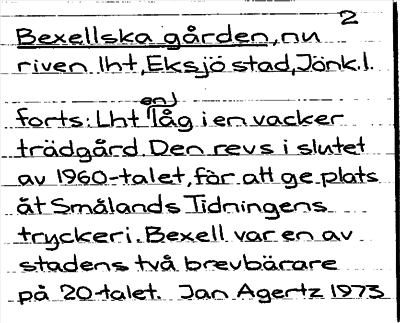 2
Bexellska gården, nu
riven lht, Eksjö stad, Jönk.l.
en)
forts: Lht låg i en vacker
trädgård. Den revs i slutet
av 1960-talet, för att ge plats
åt Smålands Tidningens
tryckeri. Bexell var en av
stadens två brevbärare
på 20-talet. Jan Agertz 1973